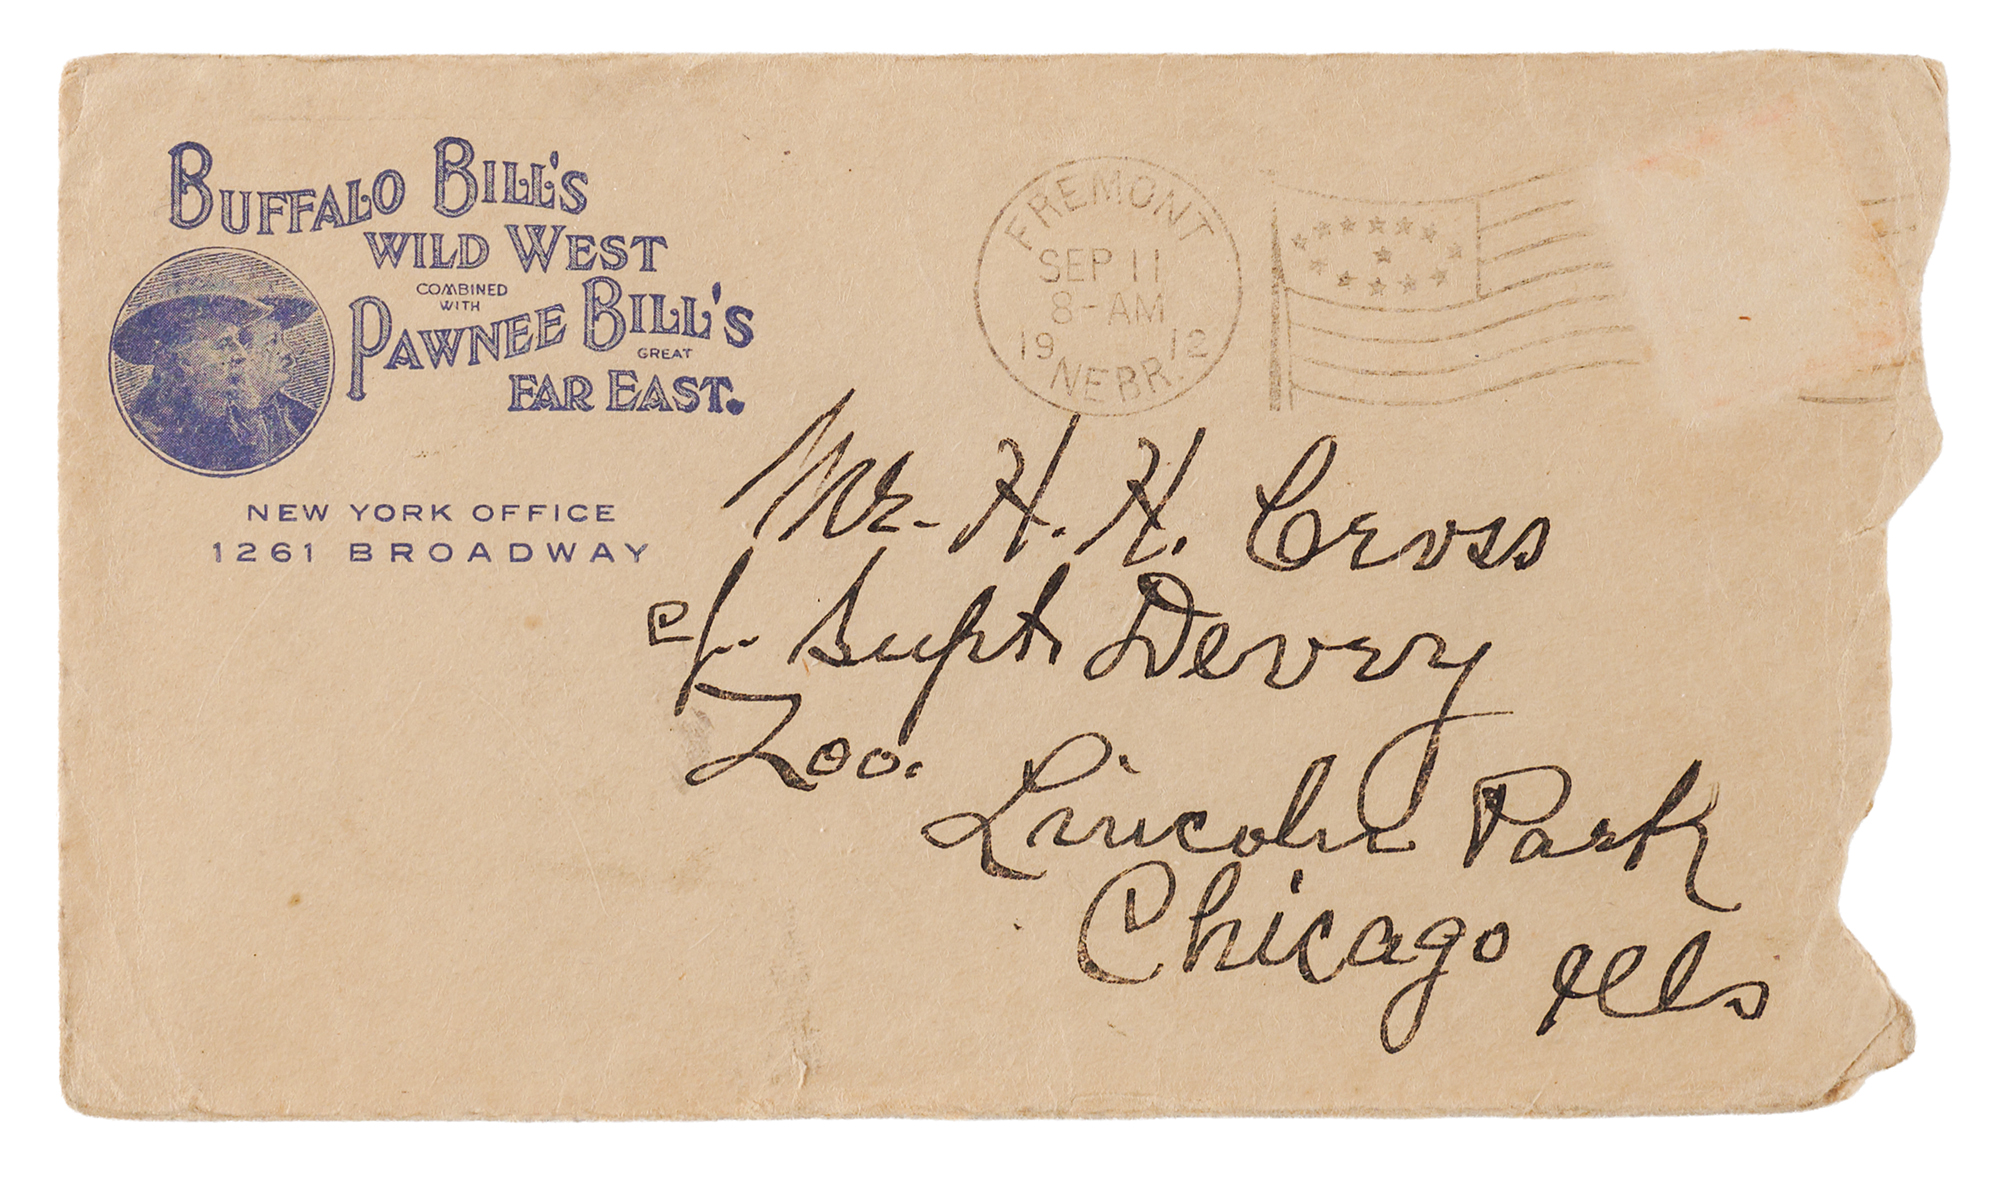 BUFFALO BILL'S
WILD WEST
COMBINED
WITH
PAWNEE BILL'S
GREAT
FAR EAST.
NEW YORK OFFICE
1261 BROADWAY
FREMONT
SEP 11
8-AM
19 12
NEBR.
Mr. H. H. Cross
c/. Supt. Devry
Zoo.
Lincoln Park
Chicago
Ills